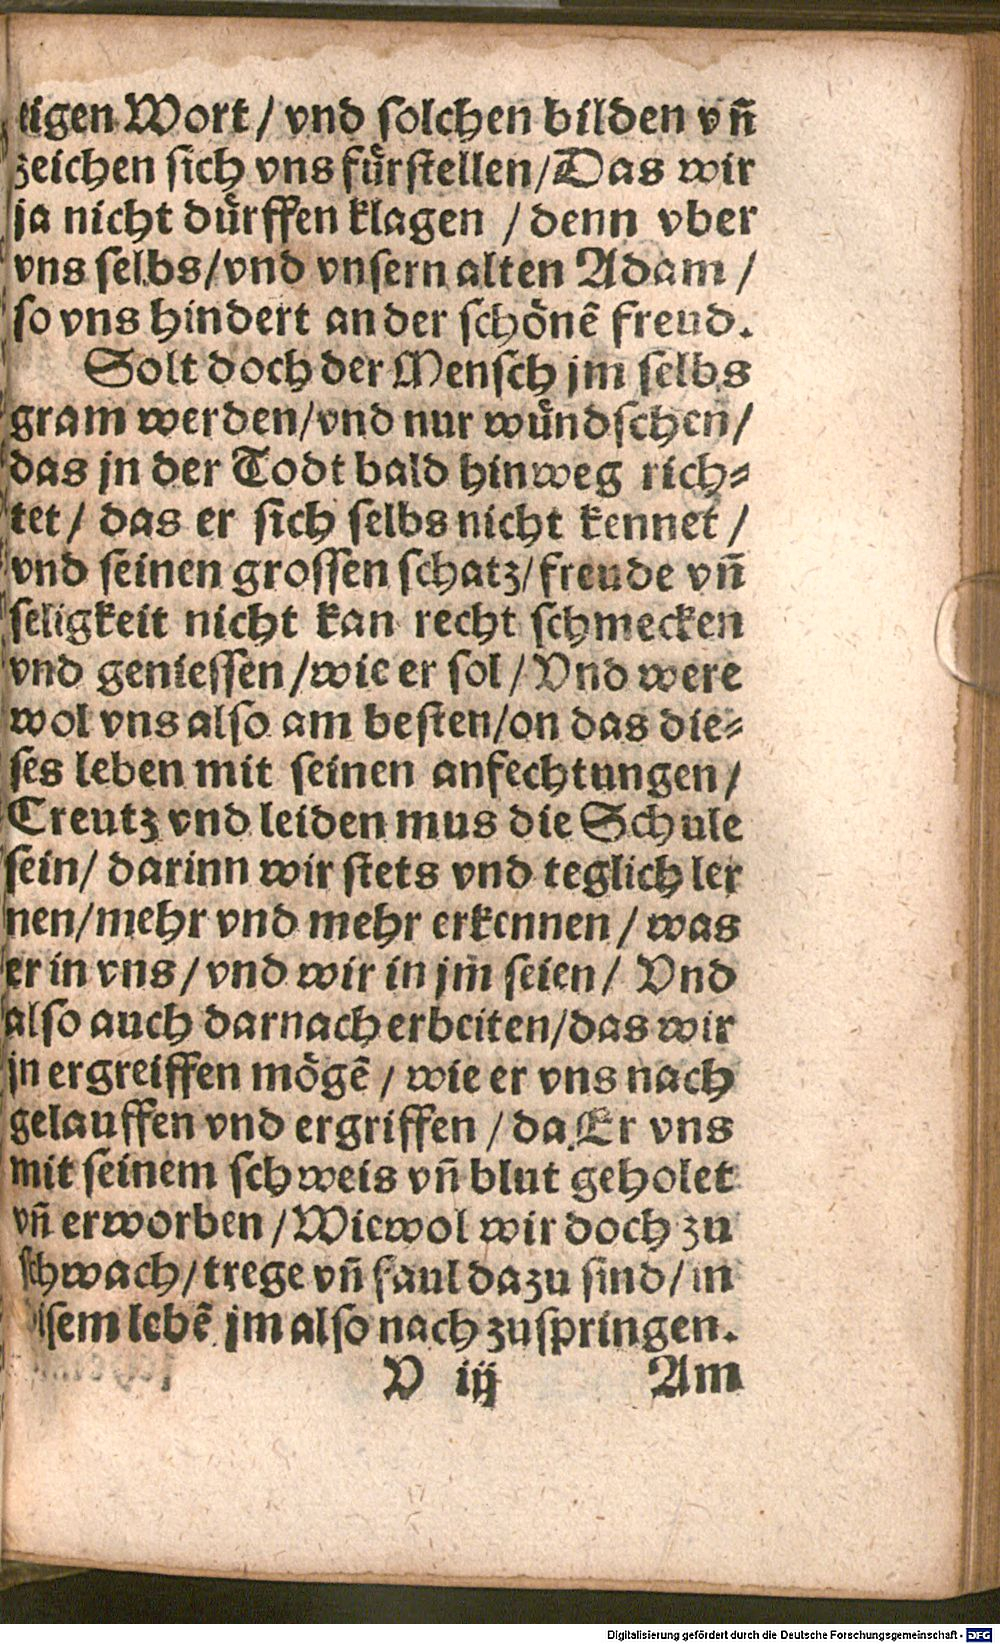 tigen Wort / vnd solchen bilden vn̄
zeichen sich vns fuͤrstellen / Das wir
ja nicht duͤrffen klagen / denn vber
vns selbs / vnd vnsern alten Adam /
so vns hindert an der schoͤnē freud.
Solt doch der Mensch jm selbs
gram werden / vnd nur wuͤndschen /
das jn der Todt bald hinweg rich⸗
tet / das er sich selbs nicht kennet /
vnd seinen grossen schatz / freude vn̄
seligkeit nicht kan recht schmecken
vnd geniessen / wie er sol / Vnd were
wol vns also am besten / on das die⸗
ses leben mit seinen anfechtungen /
Creutz vnd leiden mus die Schule
sein / darinn wir stets vnd teglich ler
nen / mehr vnd mehr erkennen / was
er in vns / vnd wir in jm seien / Vnd
also auch darnach erbeiten / das wir
jn ergreiffen moͤgē / wie er vns nach
gelauffen vnd ergriffen / da Er vns
mit seinem schweis vn̄ blut geholet
vn̄ erworben / Wiewol wir doch zu
schwach / trege vn̄ faul dazu sind / in
disem lebē jm also nach zuspringen.
V iij Am
Digitalisierung gefördert durch die Deutsche Forschungsgemeinschaft - DFG